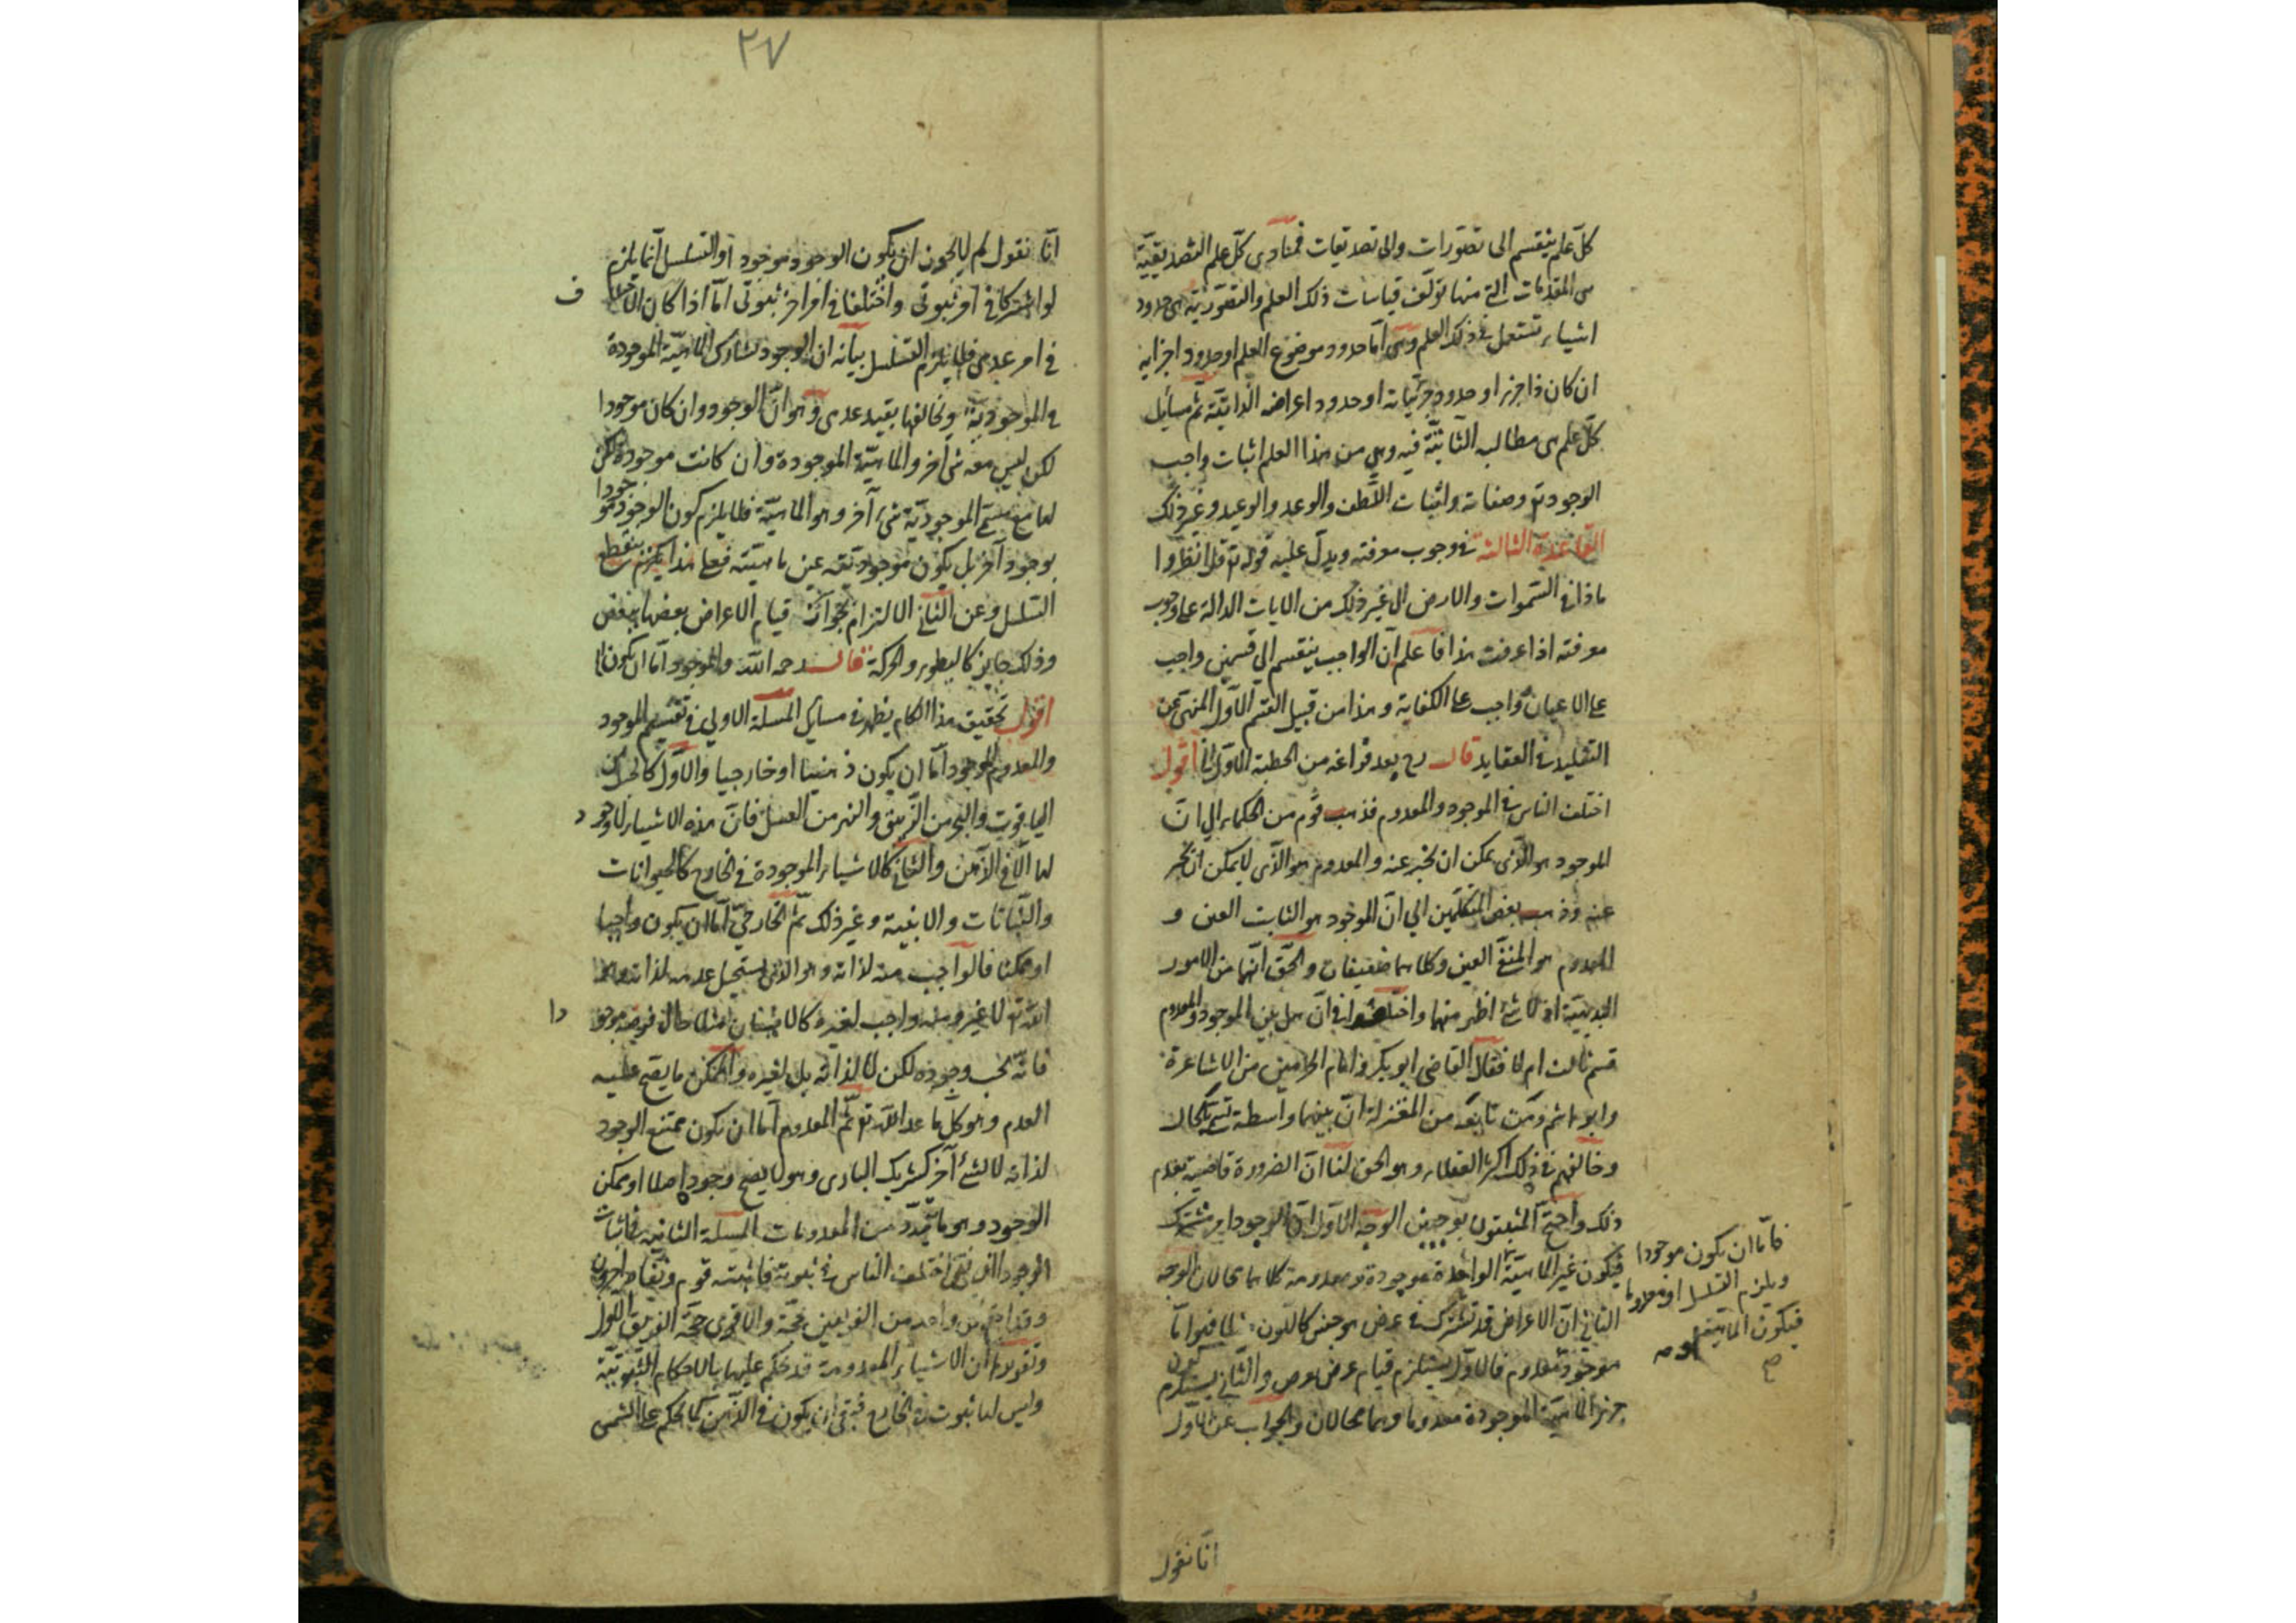 كلّ علم ينقسم الى تصوّرات والى تصديقات فمبادى كلّ علم التصديقيّة
هى المقدمات التى منها تؤلّف قياسات ذلك العلم والتصوّريّة هى حدود
اشياء تستعمل فى ذلك العلم وهى امّا حدود موضوع العلم او حدود اجزايه
ان كان ذا جزء او حدود جزئياته او حدود اعراضه الذاتيّة ثم مسايل
كلّ علم هى مطالبه الثابتة فيه وهى من هذا العلم اثبات واجب
الوجود تع وصفاته واثبات اللّطف والوعد والوعيد وغير ذلك
القاعدة الثالثة فى وجوب معرفته ويدلّ عليه قوله تع قل انظروا
ماذا فى السّموات والارض الى غير ذلك من الايات الدالة على وجوب
معرفته اذا عرفت هذا فاعلم انّ الواجب ينقسم الى قسمين واجب
على الاعيان وواجب على الكفاية وهذا من قبيل القسم الاوّل المنهى عن
التقليد فى العقايد قال رح بعد فراغه من الخطبة الاوّل اقول
اختلف الناس فى الموجود والمعدوم فذهب قوم من الحكماء الى انّ
الموجود هو الّذى يمكن ان يخبر عنه والمعدوم هو الّذى لا يمكن ان يخبر
عنه وذهب بعض المتكلّمين الى انّ الموجود هو الثابت العين و
المعدوم هو المنفىّ العين وكلاهما ضعيفان والحقّ انّهما من الامور
البديهيّة اذ لا شئ اظهر منهما واختلفوا فى انّ هل بين الموجود والمعدوم
قسم ثالث ام لا فقال القاضى ابو بكر وامام الحرمين من الاشاعرة
وابو هاشم ومن تابعه من المعتزلة انّ بينهما واسطة تسمّى بالحال
وخالفهم فى ذلك اكثر العقلاء وهو الحق لنا انّ الضرورة قاضية بعدم
ذلك واحتجّ المثبتون بوجهين الوجه الاوّل انّ الوجود امر مشترك
فيكون غير الماهيّة الواحدة موجودة ومعدومة كلاهما محالان الوجه
الثانى انّ الاعراض قد تشترك فى عرض هو جنس كاللون
موجود ومعدوم فالاوّل يستلزم قيام عرض بعرض والثانى يستلزم كون
جزء الماهيّة الموجودة معدوما وهما محالان والجواب عن الاوّل
فامّا ان يكون موجودا
ويلزم التسلسل او معدوما
فيكون الماهيّة
صح
انّا نقول
٢٧
انّا نقول لم لا يجوز ان يكون الوجود موجودا والتسلسل انّما يلزم
لو اشتركا فى امر ثبوتى واختلفا فى امر اخر ثبوتى امّا اذا كان الاختلاف
فى امر عدمى فلا يلزم التسلسل بيانه ان الوجود يشارك الماهيّة الموجودة
فى الموجوديّة ويخالفها بقيد عدمى وهو انّ الوجود وان كان موجودا
لكن ليس معه شئ آخر والماهيّة الموجودة وان كانت موجودة لكن
لها مع الموجوديّة شئ آخر وهو الماهيّة فلا يلزم كون الوجود موجودا
بوجود آخر بل يكون موجوديّته عين ماهيّته فعلى هذا ينقطع
التسلسل وعن الثانى الالتزام بجواز قيام الاعراض بعضها ببعض
وذلك جايز كالبطوء والحركة قال رحمه اللّه والموجود امّا ان يكون
اقول تحقيق هذا الكلام يظهر فى مسايل المسئلة الاولى فى تقسيم الموجود
والمعدوم الموجود امّا ان يكون ذهنيا او خارجيا والاوّل كالجبل من
الياقوت والبحر من الزّيبق والنهر من العسل فانّ هذه الاشياء لا وجود
لها الّا فى الذّهن والثانى كالاشياء الموجودة فى الخارج كالحيوانات
والنّباتات والابنية وغير ذلك ثمّ الخارجىّ امّا ان يكون واجبا
او ممكنا فالواجب منه لذاته وهو الذى يستحيل عدمه لذاته وهو
اللّه تع لا غير ومنه واجب لغيره كالانسان مثلا حال فرضه موجودا
فانّه يجب وجوده لكن لا لذاته بل لغيره والممكن ما يصح عليه
العدم وهو كلّ ما عدا اللّه تع ثمّ المعدوم امّا ان يكون ممتنع الوجود
لذاته لا لشئ آخر كشريك البارى وهو لا يصح وجوده اصلا او ممكن
الوجود وهو ما يتجدّد من المعدومات المسئلة الثانية فى اثبات
الوجود الذهنى اختلف الناس فى ثبوته فاثبته قوم ونفاه اخرون
وقد احتج كل واحد من الفريقين بحجّة والاقوى حجّة الفريق الاوّل
وتقريرها انّ الاشياء المعدومة قد نحكم عليها بالاحكام الثبوتيّة
وليس لها ثبوت فى الخارج فبقى ان يكون فى الذّهن كما نحكم على الشمس